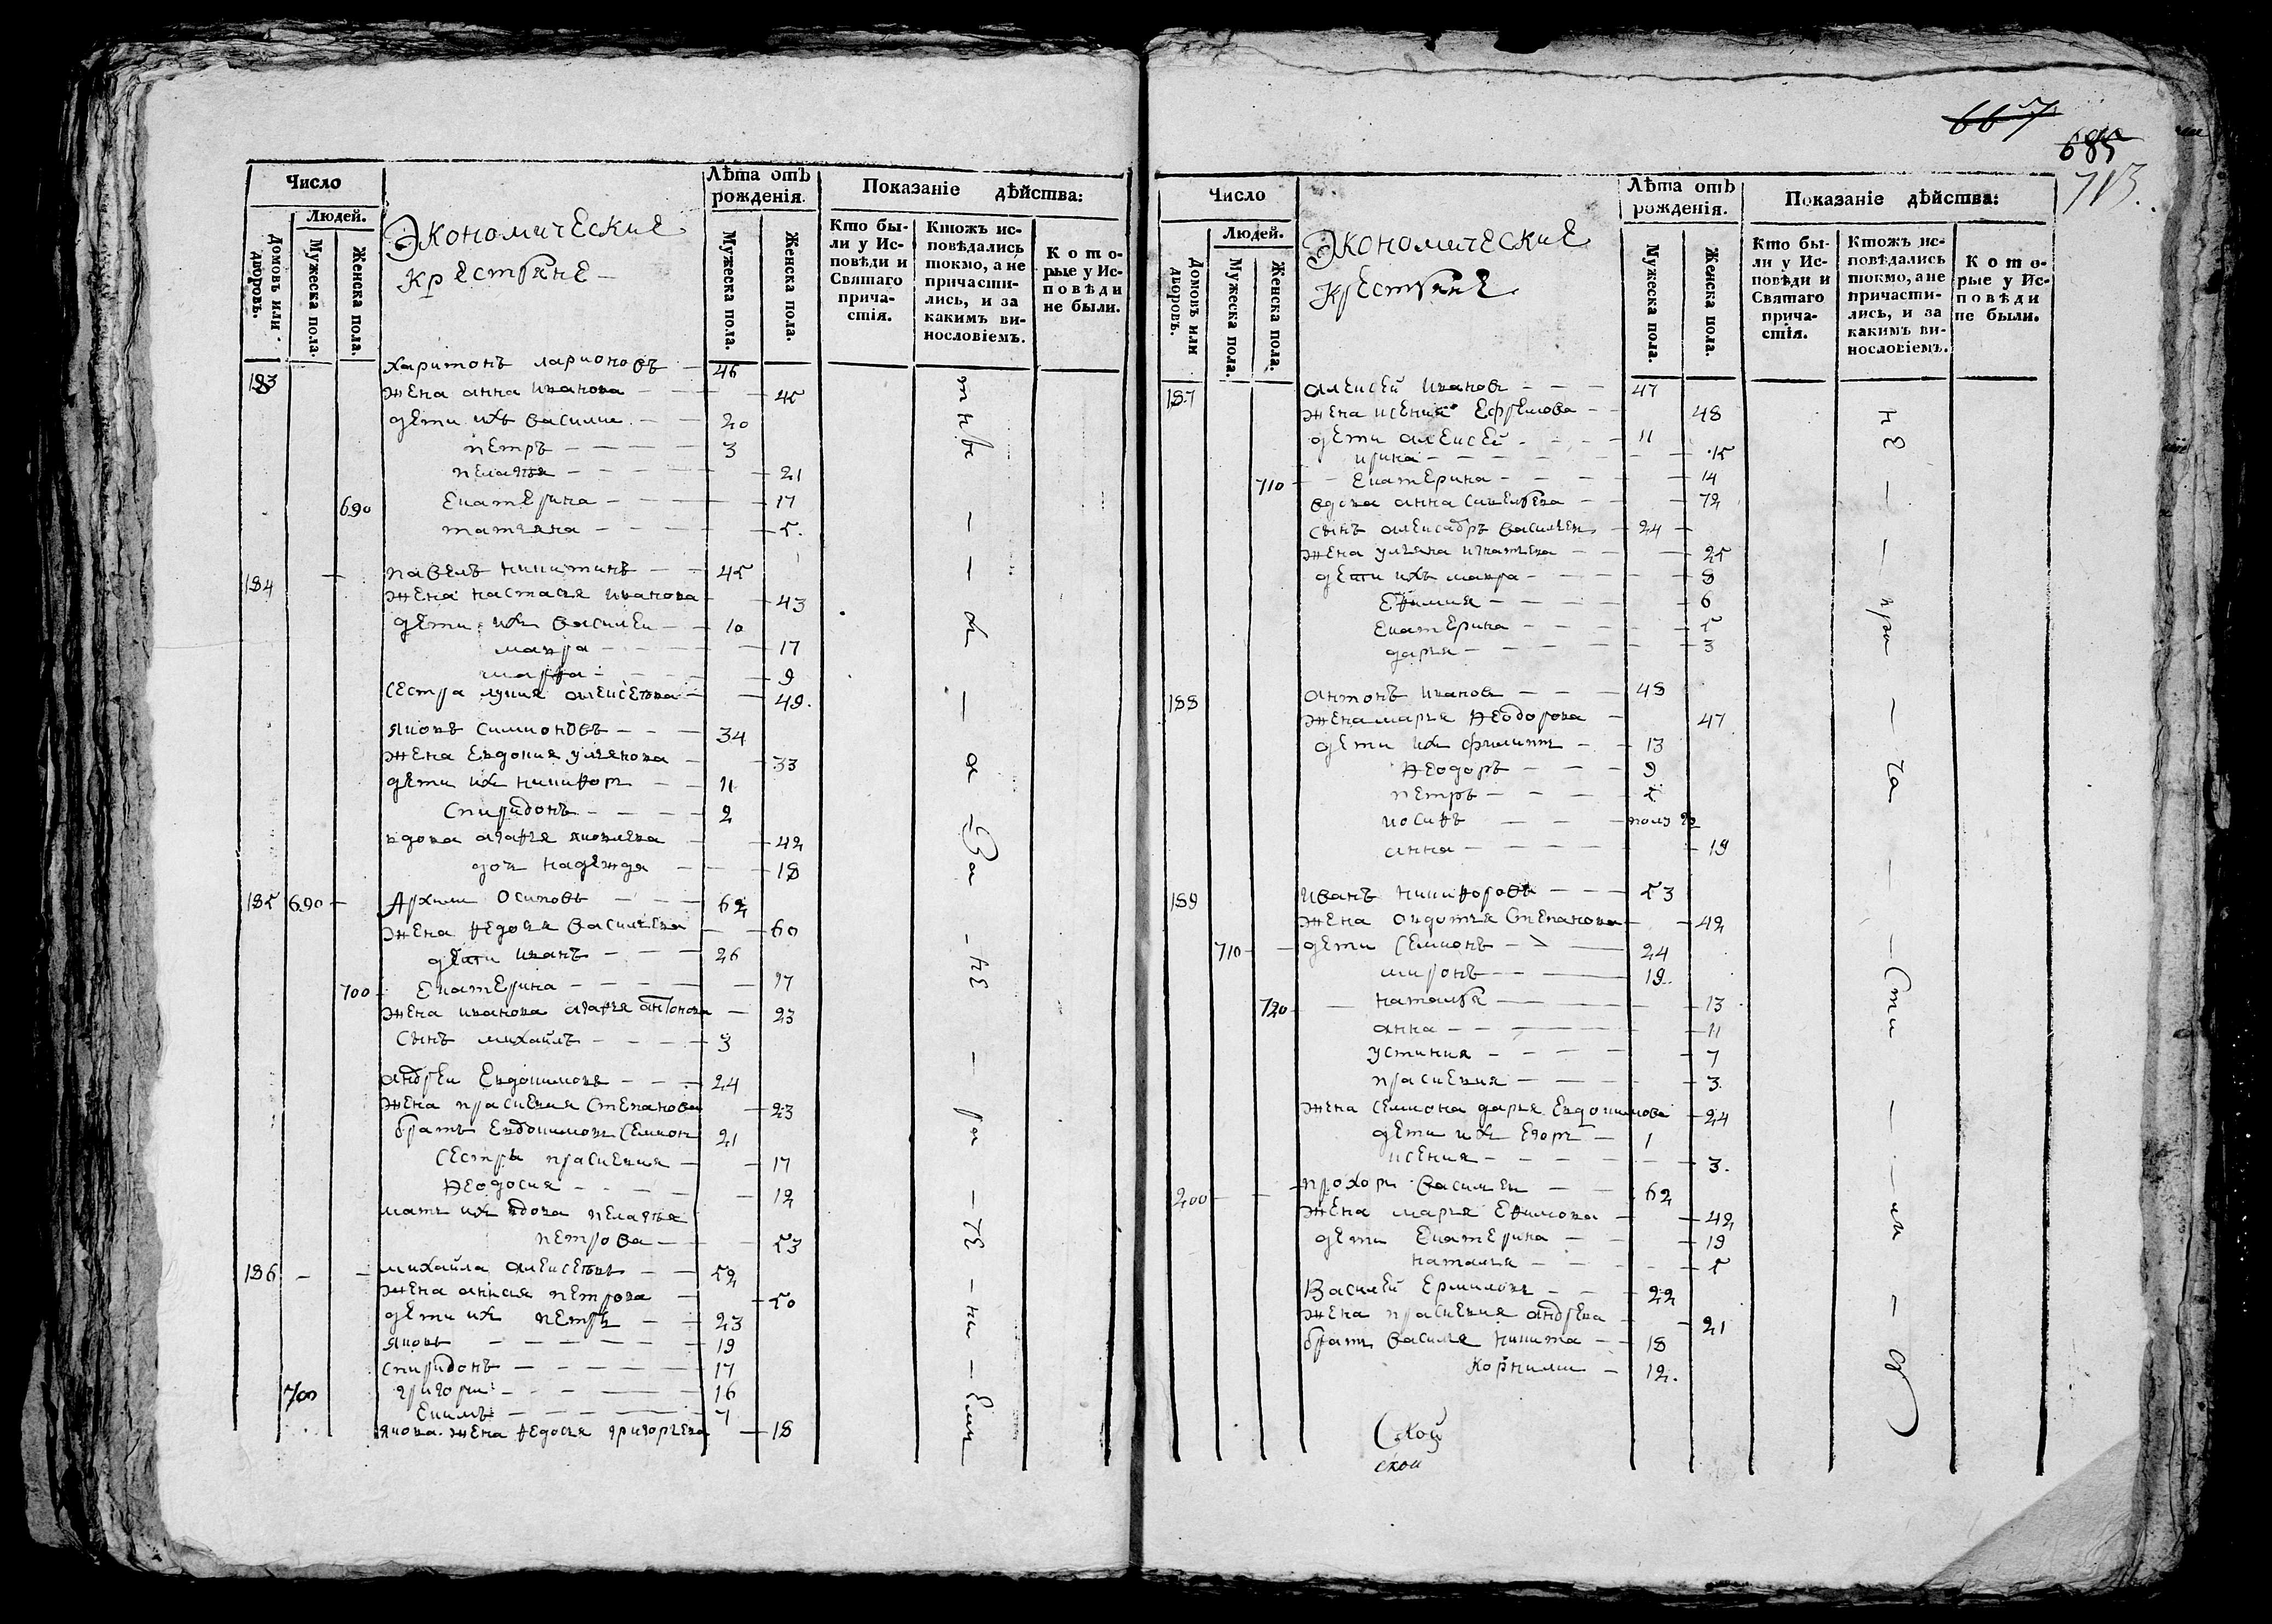 667
685
713.
Число
Людей.
Домовъ или дворовъ.
Мужеска пола.
Женска пола.
Экономические
крестьяне
Лѣта отъ рожденія.
Мужеска пола.
Женска пола.
Показаніе дѣйства:
Кто были у Исповѣди и Святаго причастія.
Ктожъ исповѣдались токмо, а не причастились, и за какимъ винословіемъ.
Которые у Исповѣди не были.
183 харитонъ ларионовъ — 46
жена анна иванова — 45
дети ихъ василии — 20
петръ — 3
пелагея — 21
690 екатерина — 17
татьяна — 5.
184 павелъ никитинъ — 45
жена настасья иванова — 43
дети их василеи — 10
мавра — 17
марфа — 9
сестра лукия алексеева — 49.
яковъ симионовъ — 34
жена евдокия ульянова — 33
дети их никифоръ — 11
спиридонъ — 2
вдова агафья яковлева — 42
дочь надежда — 18
185 690 Архипъ осиповъ — 62
жена федосья васильева — 60
дети иванъ — 26
700 екатерина — 17
жена иванова агафья антонова — 23
сынъ михайлъ — 3
андреи евдокимовъ — 24
жена прасковия степанова — 23
братъ евдокимовъ семион 21
сестры прасковия — 17
феодосия — 12
мать их вдова пелагея
петрова — 53
186 михайла алексеевъ — 52
жена анисья петрова — 50
дети их петръ — 23
яковъ — 19
спиридонъ — 17
700 григори — 16
екимъ — 7
якова жена федосья григорьева — 18
Число
Людей.
Домовъ или дворовъ.
Мужеска пола.
Женска пола.
Экономические
крестьяне
Лѣта отъ рожденія.
Мужеска пола.
Женска пола.
Показаніе дѣйства:
Кто были у Исповѣди и Святаго причастія.
Ктожъ исповѣдались токмо, а не причастились, и за какимъ винословіемъ.
Которые у Исповѣди не были.
187 алексей иванов — 47
жена ксения ефремова — 48
дети алексей — 11
ирина — 15
710 екатерина — 14
вдова анна савельева — 72
сынъ александръ васильев — 24
жена ульяна игнатьева — 25
дети ихъ мавра — 8
ефимия — 6
екатерина — 5
дарья — 3
188 антонъ иванов — 48
жена марья феодорова — 47
дети их филипп — 13
феодоръ — 9
петръ — 5
иосифъ — полу
анна — 19
189 иванъ никифоровъ — 53
жена авдотья степанова — 42
710 дети семионъ — 24
миронъ — 19
720 наталья — 13
анна — 11
устиния — 7
прасковия — 3
жена семиона дарья евдокимова — 24
дети их егоръ — 1
ксения — 3.
200 прохоръ васильеи — 62
жена марья ефимова — 42
дети екатерина — 19
наталья — 5
Василей ермиловъ — 22
жена прасковия андреева — 21
братъ василья никита — 18
корнилии — 12.
ской
ской